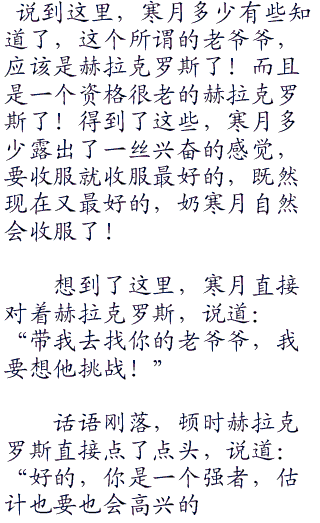 说到这里，寒月多少有些知
道了，这个所谓的老爷爷，
应该是赫拉克罗斯了！而且
是一个资格很老的赫拉克罗
斯了！得到了这些，寒月多
少露出了一丝兴奋的感觉，
要收服就收服最好的，既然
现在又最好的，奶寒月自然
会收服了！
想到了这里，寒月直接
对着赫拉克罗斯，说道：
“带我去找你的老爷爷，我
要想他挑战！”
话语刚落，顿时赫拉克
罗斯直接点了点头，说道：
“好的，你是一个强者，估
计也要也会高兴的